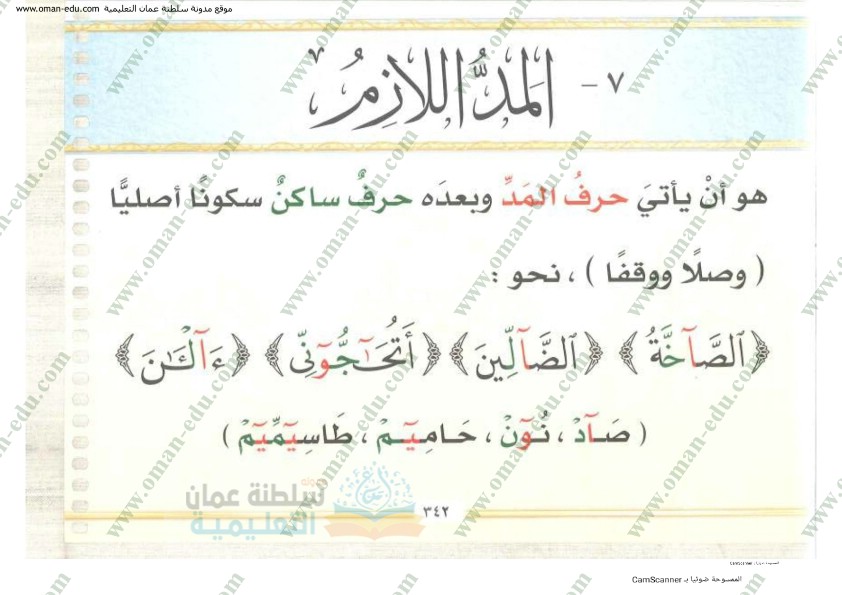 موقع مدونة سلطنة عمان التعليمية www.oman-edu.com
٧ - المَدُّ اللازِمُ
هو أنْ يأتيَ حرفُ المَدِّ وبعدَه حرفٌ ساكنٌ سكونًا أصليًّا
( وصلًا ووقفًا ) ، نحو :
﴿ٱلصَّآخَّةُ﴾ ﴿ٱلضَّآلِّينَ﴾ ﴿أَتُحَـٰٓجُّوٓنِّي﴾ ﴿ءَآلْـَٰٔنَ﴾
( صَـآدْ ، نُـوٓنْ ، حَـامِيٓـمْ ، طَاسِيٓمِّيٓمْ )
سلطنة عمان
التعليمية
٣٤٢
الممسوحة ضوئيا بـ CamScanner
الممسوحة ضوئيا بـ CamScanner
www.oman-edu.com